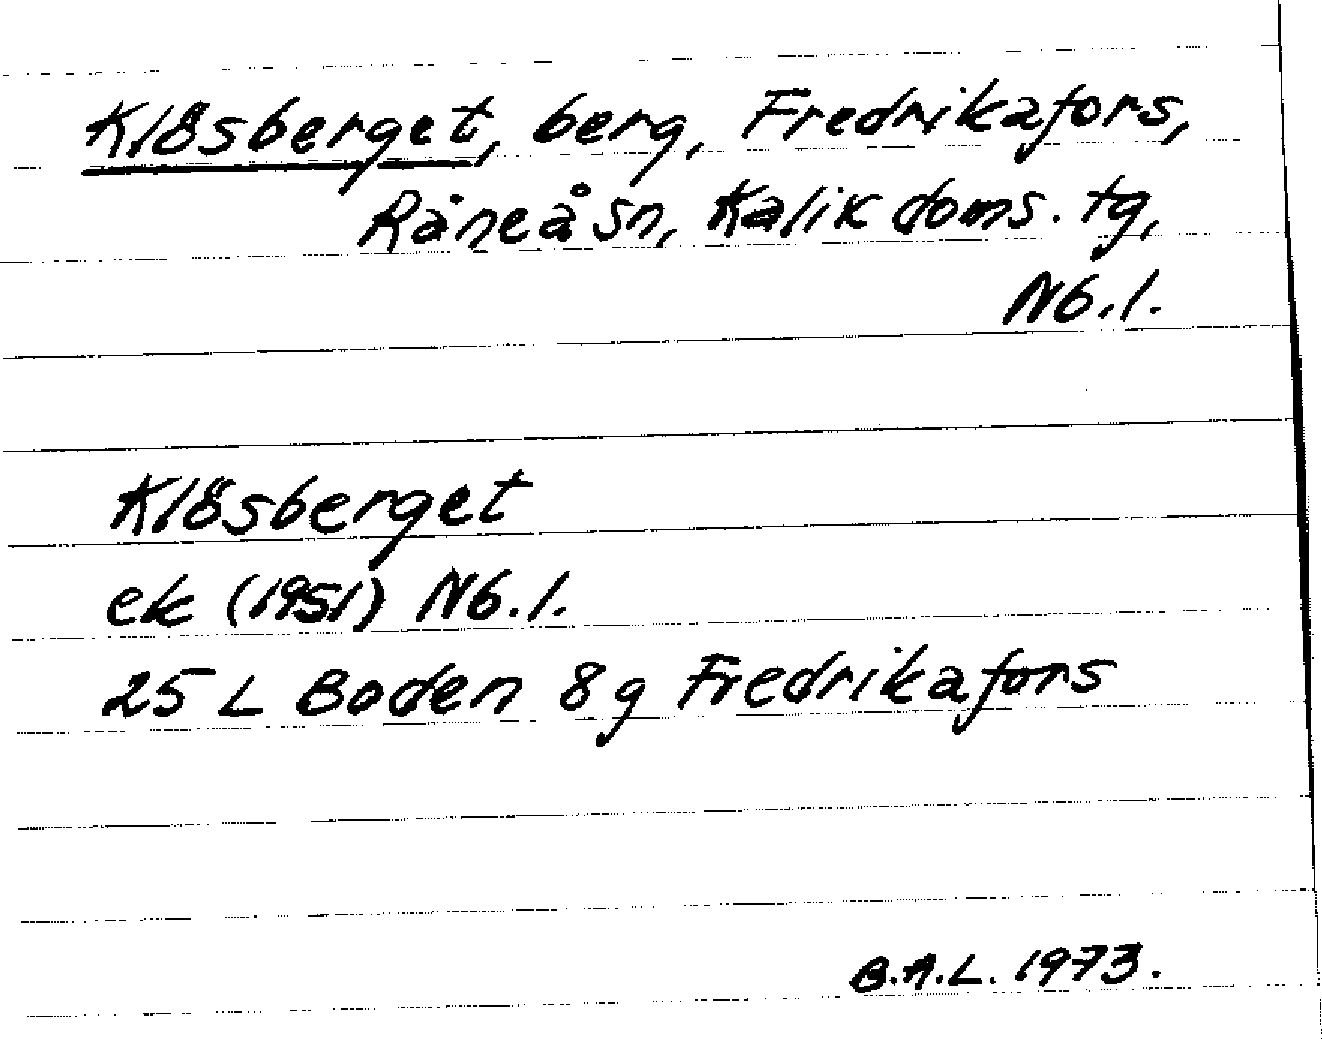 Klösberget, berg, Fredrikafors,
Råneå sn, Kalix doms. tg,
Nb. l.
Klösberget
ek (1951) Nb. l.
25 L Boden 8g Fredrikafors
B.A.L. 1973.